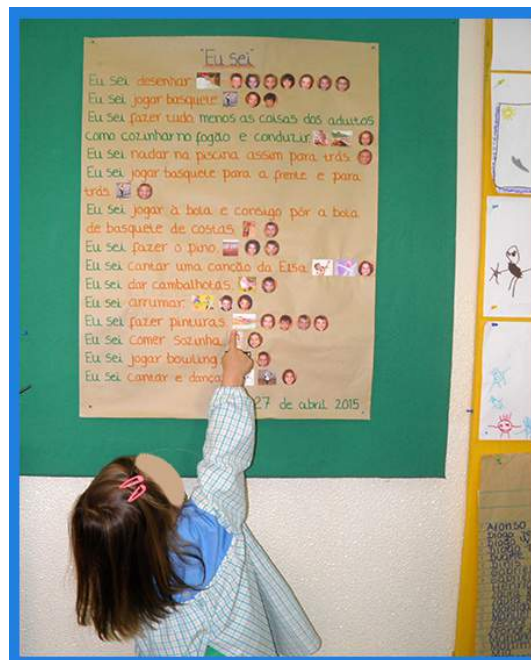 "Eu sei"
Eu sei desenhar
Eu sei jogar basquete
Eu sei fazer tudo menos as coisas dos adultos
como cozinhar no fogão e conduzir
Eu sei nadar na piscina assim para trás
Eu sei jogar basquete para a frente e para
trás
Eu sei jogar à bola e consigo pôr a bola
de basquete de costas
Eu sei fazer o pino
Eu sei cantar uma canção da Elsa
Eu sei dar cambalhotas
Eu sei arrumar
Eu sei fazer pinturas
Eu sei comer sozinha
Eu sei jogar bowling
Eu sei cantar e dança
27 de abril 2015
Afonso